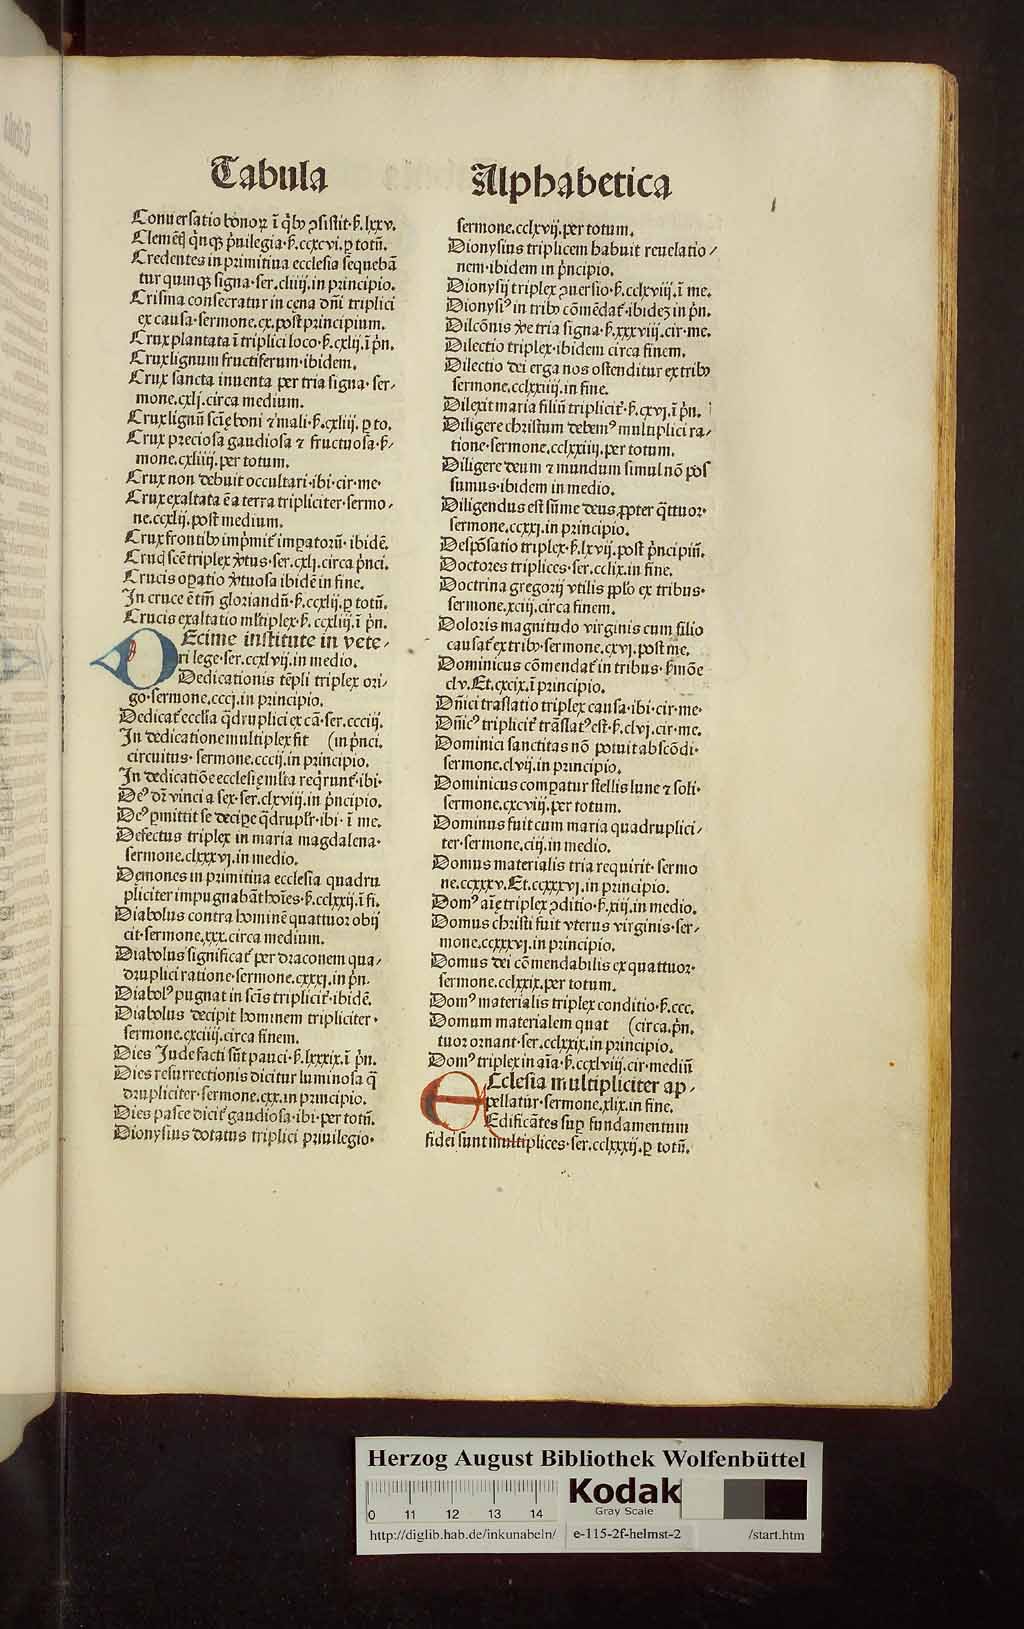 Tabula Alphabetica
Conuersatio bonoꝝ ĩ q̃bꝰ ꝯsistit·ẜ.lxxv.
Clemẽtĳ q̃nqꝫ p̃uilegia·ẜ.ccxcvi.ꝑ totũ.
Credentes in primitiua ecclesia sequebã
tur quinqꝫ signa·ser.cliiij.in principio.
Crisma consecratur in cęna dñi triplici
ex causa·sermone.cx.post principium.
Crux plantata ĩ triplici loco·ẜ.cxlij.ĩ p̃n.
Crux lignum fructiferum·ibidem.
Crux sancta inuenta per tria signa·ser⸗
mone.cxlj.circa medium.
Crux lignũ scię boni ⁊ mali·ẜ.cxliij.ꝑ to.
Crux preciosa gaudiosa ⁊ fructuosa·ẜ⸗
mone.cxliiij.per totum.
Crux non debuit occultari·ibi·cir·me·
Crux exaltata ẽ a terra tripliciter·sermo⸗
ne.ccxlij.post medium.
Crux frontibꝰ imp̃mit᷑ imꝑatorũ·ibidẽ.
Crucĳ scẽ triplex v̾tus·ser.cxlj.circa p̃nci.
Crucis oꝑatio v̾tuosa ibidẽ in fine.
In cruce ẽ tm̃ gloriandũ·ẜ.ccxlij.ꝑ totũ.
Crucis exaltatio ml̃tiplex·ẜ.ccxliij.ĩ p̃n.
DEcime institute in vete⸗
ri lege·ser.ccxlvij.in medio.
Dedicationis tẽpli triplex ori⸗
go·sermone.cccj.in principio.
Dedicat᷑ eccl̃ia q̃druplici ex cã·ser.ccciij.
In dedicatione multiplex fit (in p̃nci.
circuitus·sermone.cccij.in principio.
In dedicatiõe ecclesię ml̃ta req̃runt᷑·ibi·
Deꝰ dr̃ vinci a sex·ser.clxviij.in p̃ncipio.
Deꝰ ꝑmittit se deciꝑe q̃druplr̃·ibi·ĩ me.
Defectus triplex in maria magdalena·
sermone.clxxxvj.in medio.
Dęmones in primitiua ecclesia quadru
pliciter impugnabãt hoĩes·ẜ.cclxxij.ĩ fi.
Diabolus contra hominẽ quattuor obij
cit·sermone.xxx.circa medium.
Diabolus significat᷑ per draconem qua⸗
druplici ratione·sermone.cxxxj.in p̃n.
Diabolꝰ pugnat in scãs triplicit᷑·ibidẽ.
Diabolus decipit hominem tripliciter·
sermone.cxciiij.circa finem.
Dies Iude facti sũt pauci·ẜ.lxxxix.ĩ p̃n.
Dies resurrectionis dicitur luminosa q̃
drupliciter·sermone.cxx.in principio.
Dies pasce dicit᷑ gaudiosa·ibi·per totũ.
Dionysius dotatus triplici priuilegio·
sermone.cclxvij.per totum.
Dionysius triplicem habuit reuelatio⸗
nem·ibidem in p̃ncipio.
Dionysij triplex ꝯuersio·ẜ.cclxviij.ĩ me.
Dionysiꝰ in tribꝰ cõmẽdat᷑·ibideꝫ in p̃n.
Dilcõnis v̾e tria signa·ẜ.xxxviij.cir·me.
Dilectio triplex·ibidem circa finem.
Dilectio dei erga nos ostenditur ex tribꝰ
sermone.cclxxiiij.in fine.
Dilexit maria filiũ triplicit᷑·ẜ.cxvj.ĩ p̃n.
Diligere christum debemꝰ multiplici ra⸗
tione·sermone.cclxxiiij.per totum.
Diligere deum ⁊ mundum simul nõ pos
sumus·ibidem in medio.
Diligendus est sũme deus ꝓpter q̃ttuor·
sermone.ccxxj.in principio.
Despõsatio triplex·ẜ.lxvij.post p̃ncipiũ.
Doctores triplices·ser.cclix.in fine.
Doctrina gregorij vtilis pp̃lo ex tribus·
sermone.xciij.circa finem.
Doloris magnitudo virginis cum filio
causat᷑ ex tribꝰ·sermone.cxvj.post me.
Dominicus cõmendat᷑ in tribus·ẜmõe
clv.Et.cxcix.ĩ principio.
Dñici traslatio triplex causa·ibi·cir·me·
Dñicꝰ triplicit᷑ trãslatꝰ est·ẜ.clvj.cir·me.
Dominici sanctitas nõ potuit abscõdi·
sermone.clvij.in principio.
Dominicus comꝑatur stellis lune ⁊ soli·
sermone.cxcviij.per totum.
Dominus fuit cum maria quadruplici⸗
ter·sermone.ciij.in medio.
Domus materialis tria requirit·sermo
ne.ccxxxv.Et.ccxxxvj.in principio.
Domꝰ aĩę triplex ꝯditio·ẜ.xiij.in medio.
Domus christi fuit vterus virginis·ser⸗
mone.ccxxxvj.in principio.
Domus dei cõmendabilis ex quattuor·
sermone.cclxxix.per totum.
Domꝰ materialis triplex conditio·ẜ.ccc.
Domum materialem quat (circa.p̃n.
tuor ornant·ser.cclxxix.in principio.
Domꝰ triplex in aĩa·ẜ.ccxlviij.cir·mediũ
ECclesia multipliciter ap⸗
pellatur·sermone.xlix.in fine.
Edificãtes suꝑ fundamentum
fidei sunt multiplices·ser.cclxxxij.ꝑ totũ.
Herzog August Bibliothek Wolfenbüttel
Kodak
Gray Scale
0 11 12 13 14
http://diglib.hab.de/inkunabeln/ e-115-2f-helmst-2 /start.htm